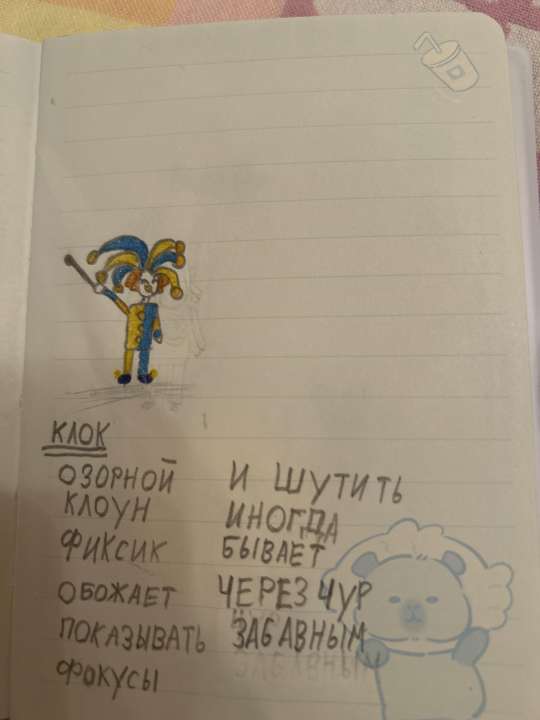 КЛОК
ОЗОРНОЙ
КЛОУН
ФИКСИК
ОБОЖАЕТ
ПОКАЗЫВАТЬ
ФОКУСЫ
И ШУТИТЬ
ИНОГДА
БЫВАЕТ
ЧЕРЕЗ ЧУР
ЗАБАВНЫМ